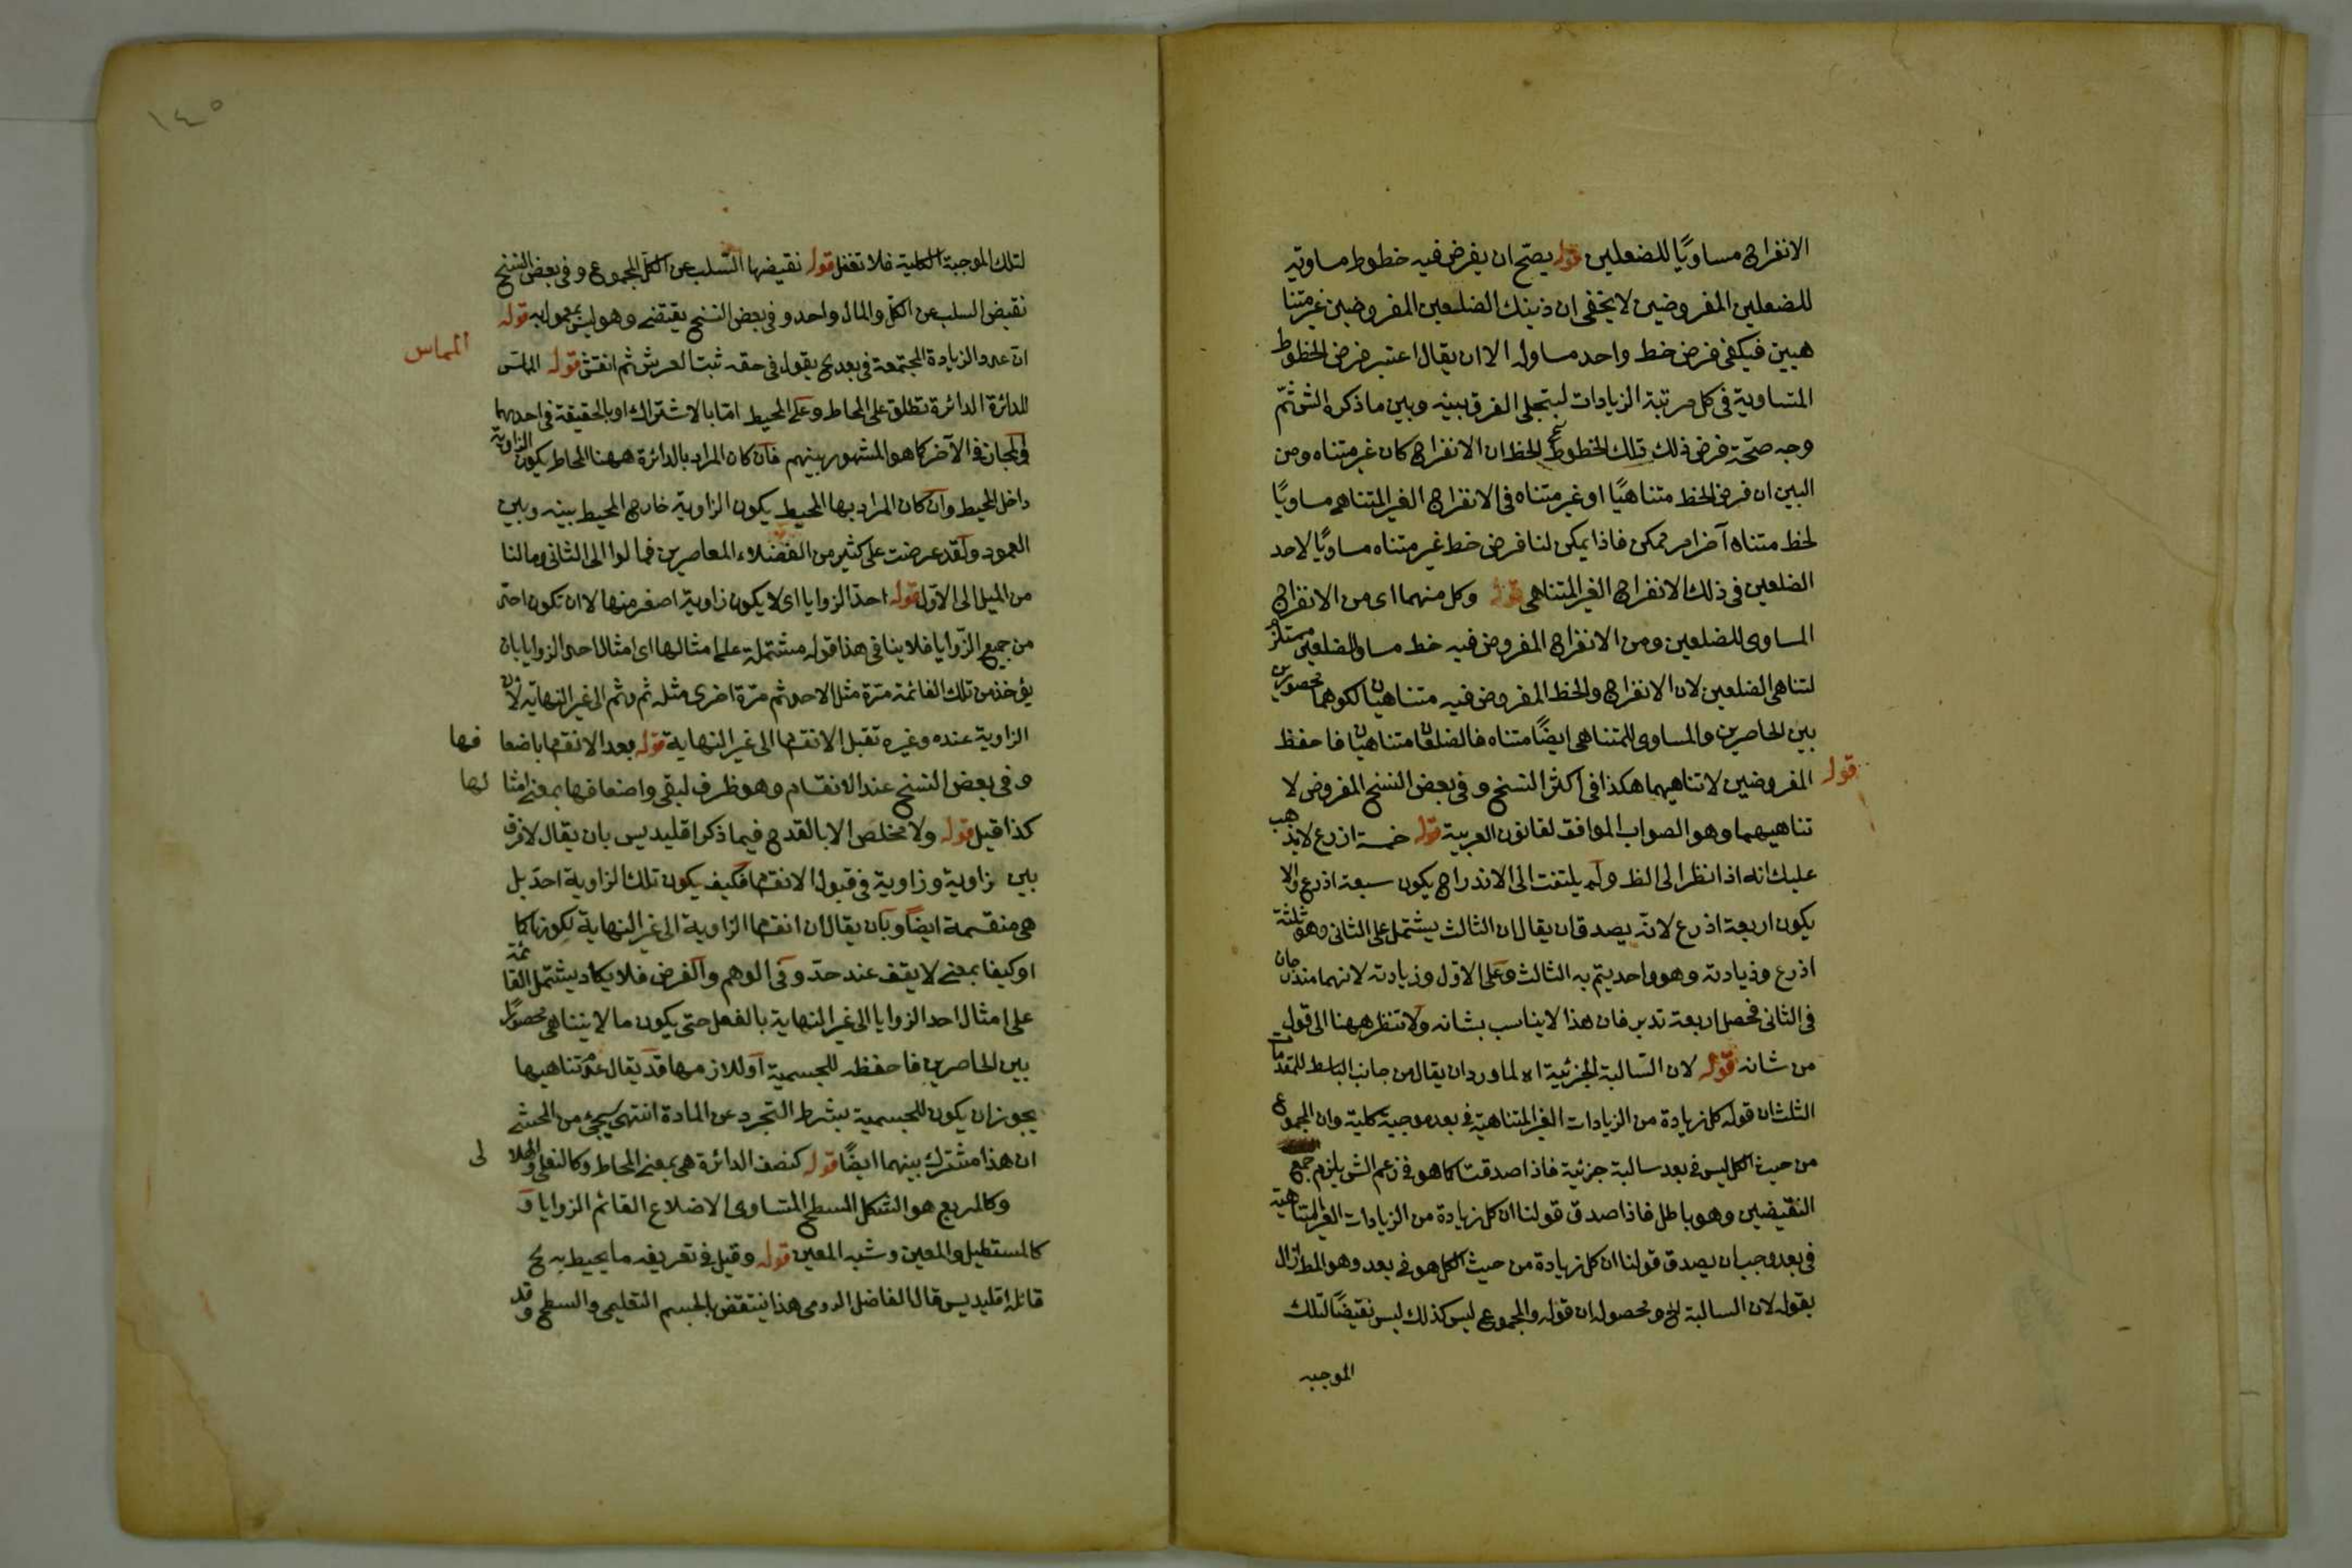 الانفراج مساويًا للضلعين قوله يصح ان يفرض فيه خطوط مساوية
للضلعين المفروضين لا يخفى ان ذينك الضلعين المفروضين غير متنا
هيين فيكفى فرض خط واحد مساو له الا ان يقال اعتبر فرض الخطوط
المتساوية فى كل مرتبة الزيادات ليتجلى الفرق بينه وبين ما ذكره الش ثمّ
وجه صحّة فرض ذلك تلك الخطوط الخط ان الانفراج كان غير متناه ومن
البين ان فرض الخط متناهيًا او غير متناه فى الانفراج الغير المتناهى مساويًا
لخط متناه آخر امر ممكن فاذا يمكن لنا فرض خط غير متناه مساويًا لاحد
الضلعين فى ذلك الانفراج الغير المتناهى قوله وكل منهما اى من الانفراج
المساوى للضلعين ومن الانفراج المفروض فيه خط مساو للضلعين مستلزم
لتناهى الضلعين لان الانفراج والخط المفروض فيه متناهيان لكونهما محصورين
بين الحاصرين والمساوى للمتناهى ايضًا متناه فالضلعان متناهيان فاحفظ
قوله المفروضين لا تناهيهما هكذا فى اكثر النسخ و فى بعض النسخ المفروض لا
تناهيهما وهو الصواب الموافق لقانون العربية قوله خمسة اذرع لا يذهب
عليك انه اذا نظر الى الظ ولم يلتفت الى الاندراج يكون سبعة اذرع والا
يكون اربعة اذرع لانه يصدق ان يقال ان الثالث يشتمل على الثانى وهو ثلثة
اذرع وزيادته وهو واحد يتم به الثالث وعلى الاول وزيادته لانهما مندرجان
فى الثانى فحصل اربعة تدبر فان هذا لا يناسب بشانه ولا تنظر ههنا الى قول
من شانه قوله لان السالبة الجزئية اه لما ورد ان يقال من جانب الباسط للمقدمات
الثلث ان قوله كل زيادة من الزيادات الغير المتناهية فى بعد موجبة كلية وان المجموع
من حيث الكل ليس فى بعد سالبة جزئية فاذا صدقتا كما هو فى زعم الش يلزم جمع
النقيضين وهو باطل فاذا صدق قولنا ان كل زيادة من الزيادات الغير المتناهية
فى بعد وجب ان يصدق قولنا ان كل زيادة من حيث الكل هو فى بعد وهو المط ازال
بقوله لان السالبة الخ ومحصوله ان قوله والمجموع ليس كذلك ليس نقيضًا لتلك
الموجبه
١٤٥
لتلك الموجبة الكلية فلا تغفل قوله نقيضها السلب عن الكل المجموع و فى بعض النسخ
نقيض السلب عن الكل والمال واحد و فى بعض النسخ يقتضى وهو ليس بمعمول به قوله
ان عدد الزيادة المجتمعة فى بعد يقول فى حقه ثبت العرش ثم انقش قوله المماس
المماس
للدائرة الدائرة تطلق على المحاط وعلى المحيط امّا بالاشتراك او بالحقيقة فى احديهما
والمجاز فى الآخر كما هو المشهور بينهم فان كان المراد بالدائرة ههنا المحاط يكون الزاوية
داخل المحيط وان كان المراد بها المحيط يكون الزاوية خارج المحيط بينه وبين
العمود ولقد عرضت على كثير من الفضلاء المعاصرين فمالوا الى الثانى ومالنا
من الميل الى الاول قوله احدّ الزوايا اى لا يكون زاوية اصغر منها لا ان تكون احدّ
من جميع الزوايا فلا ينافى هذا قوله مشتملة على امثالها اى امثال احدّ الزوايا بان
يؤخذ من تلك القائمة مرّة مثل الاحد ثم مرّة اخرى مثله ثم وثم الى غير النهاية لان
الزاوية عنده وغيره تقبل الانقسام الى غير النهاية قوله بعد الانقسام باضعا فها
و فى بعض النسخ عند الانقسام وهو ظرف لبقى واضعافها بمعنى امثا لها
كذا قيل قوله ولا مخلص الا بالقدح فيما ذكر اقليديس بان يقال لا فرق
بين زاوية وزاوية فى قبول الانقسام فكيف يكون تلك الزاوية احدّ بل
هى منقسمة ايضًا وبان يقال ان انقسام الزاوية الى غير النهاية لكونها كما
او كيفا بمعنى لا يقف عند حدّ و فى الوهم والفرض فلا يكاد يشتمل القائمة
على امثال احد الزوايا الى غير النهاية بالفعل حتى يكون ما لا يتناهى محصورًا
بين الحاصرين فاحفظه للجسمية او للازمها قد يقال تناهيها
يجوز ان يكون للجسمية بشرط التجرد عن المادة انتهى سيجئ من المحشى
ان هذا مشترك بينهما ايضًا قوله كنصف الدائرة هى بمعنى المحاط وكالنعلى والهلا لى
وكالمربع هو الشكل المسطح المتساوى الاضلاع القائم الزوايا و
كالمستطيل والمعين وشبه المعين قوله وقيل فى تعريفه ما يحيط به الخ
قائله اقليديس قال الفاضل الرومى هذا ينتقض بالجسم التعليمى والسطح وقد